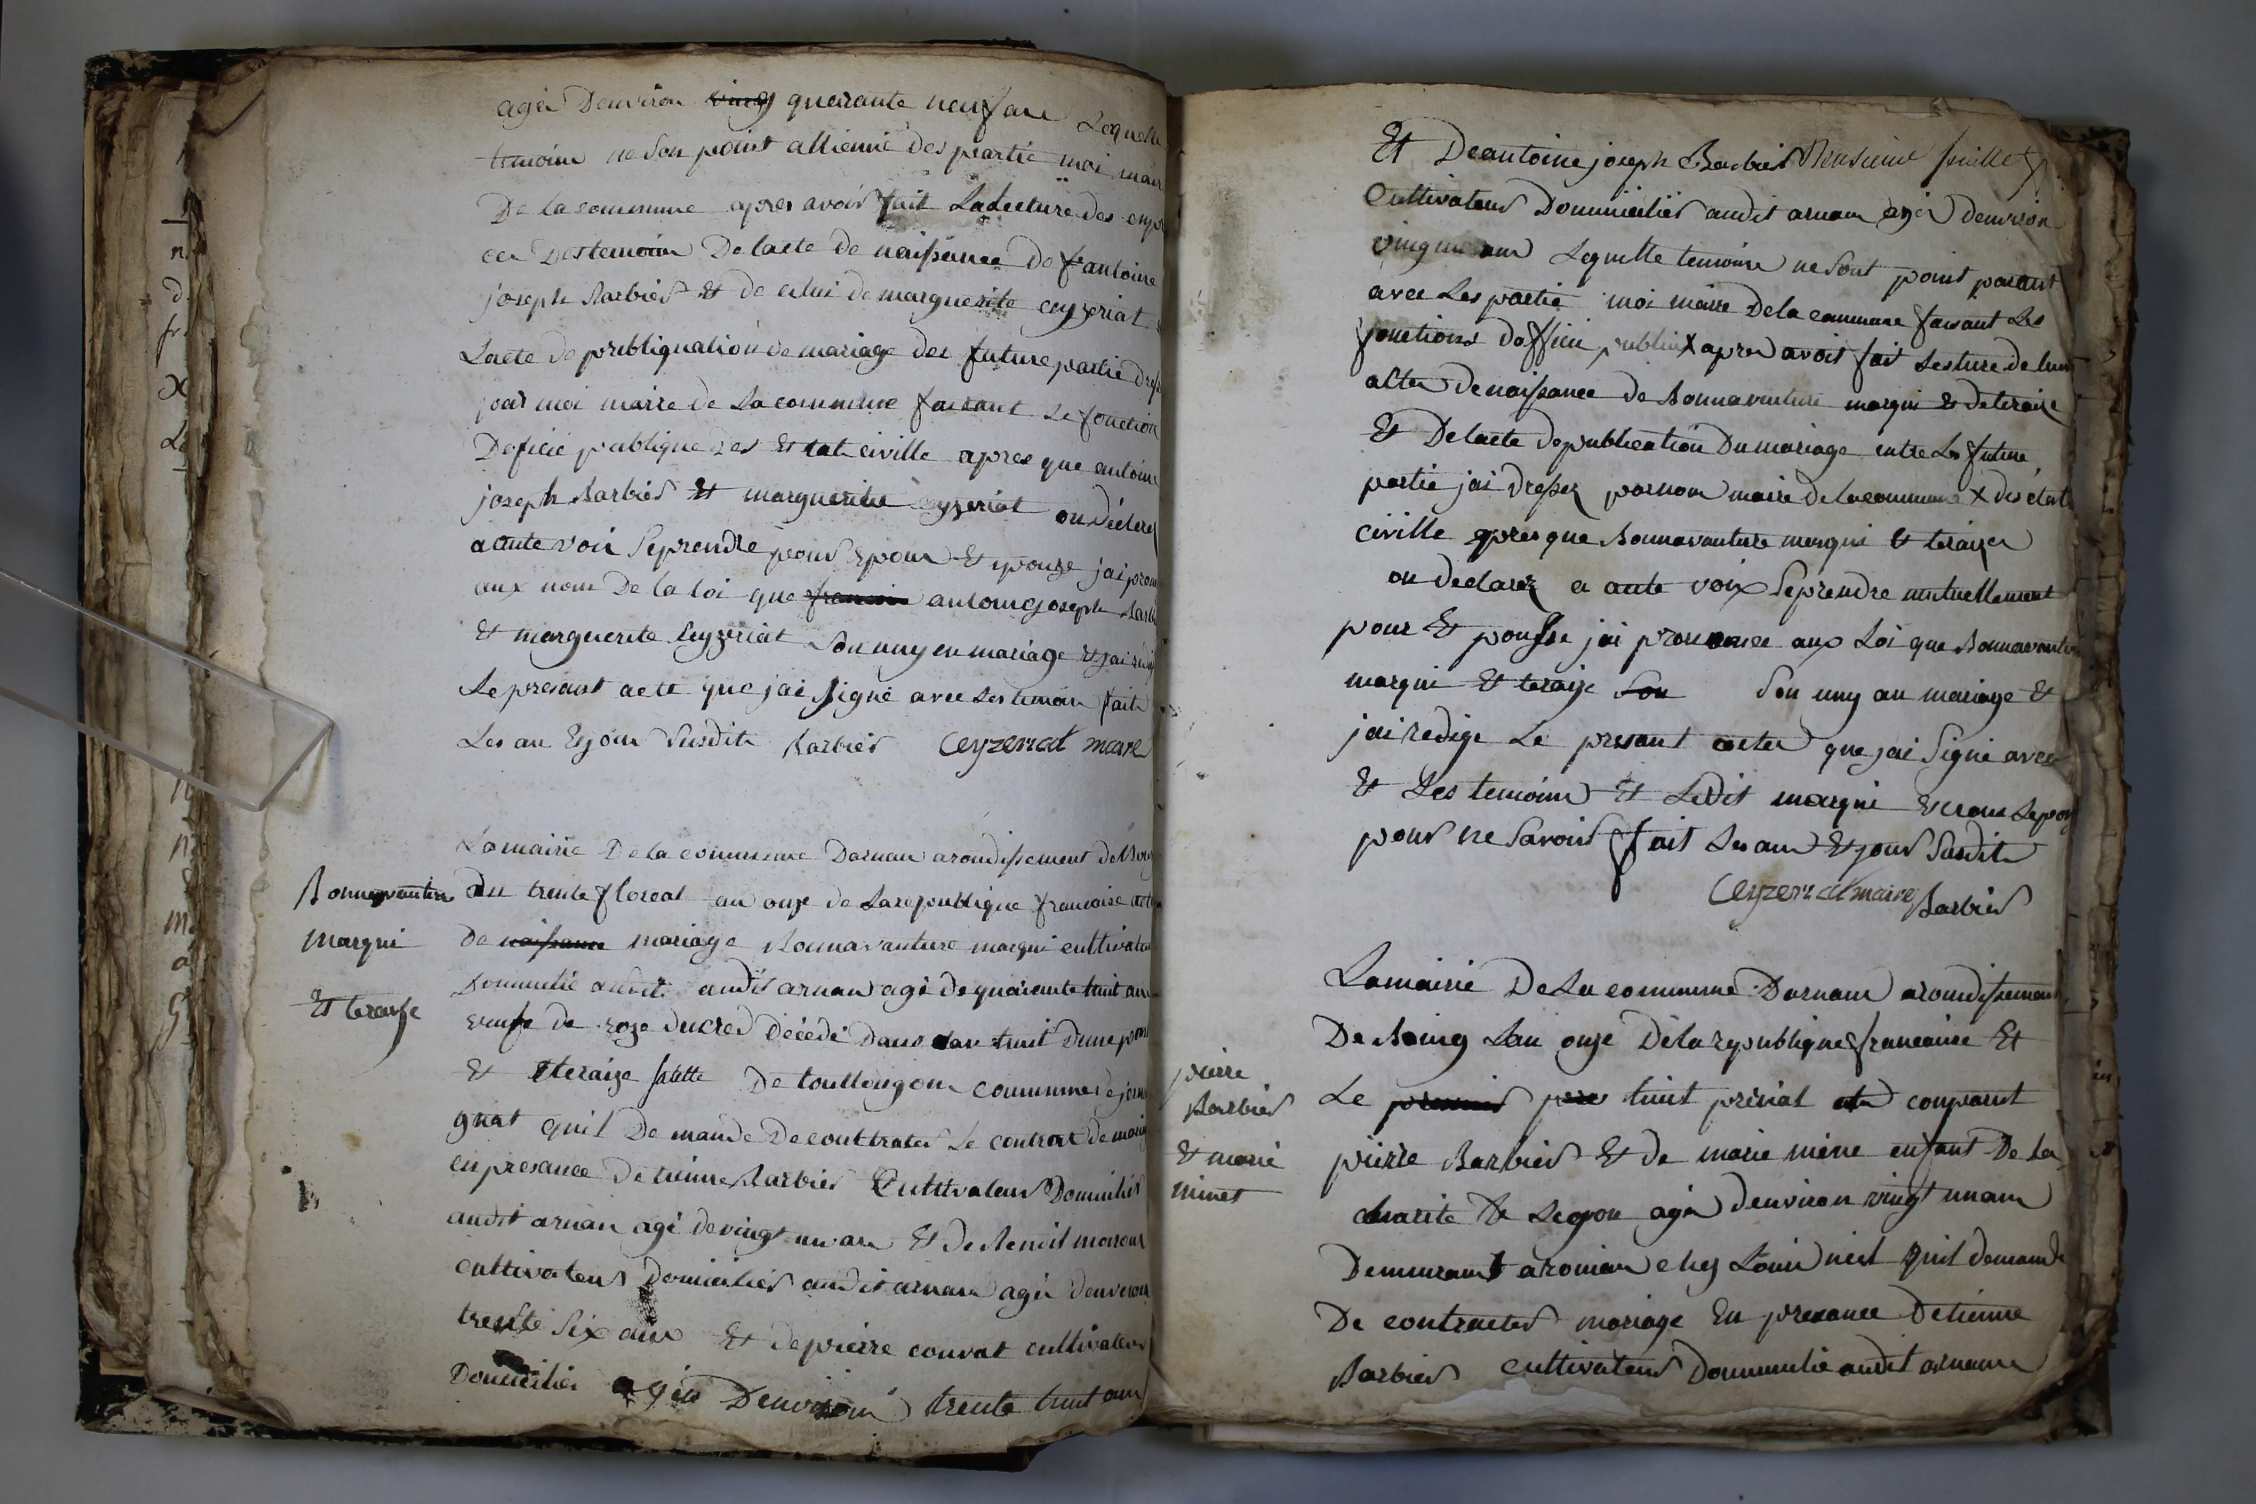 agé Denviron vingt quarante neuf an Lequelle
temoins ne son point allienié des partie moi maire
De la commune apres avoir fait La Lecture des
Des temoin De lacte de naissance de f antoine
joseph Barbier Et de celui de marguerite ceyzeriat
Lacte de publiquation de mariage des future partie
par moi maire de La commune faisant Le fonction
Doficié publique des Et tat civille apres que antoine
joseph Barbier Et marguerite ceyzeriat on déclerez
a aute voix Seprendre pour Epoux Et epouze jai
aux nom De la loi que francois antoine joseph
Et marguerite Ceyzeriat Son uny en mariage Et jai
Le presant acte que jai signé avec Les temoin fait
Les an Et jour Susdit Barbier Ceyzerrat maire
Lamairie De la commune Darnan arondissement de
Bonnavanture
Du trente floreal an onze de La republique francaise
Marqui
De naissance mariage Bonnavanture marqui cultivateur
Domicilié audit arnan agé de quarante huit an
Et teraise
veufe de roze Ducred Décédé Dans Lan huit
Et teraize Salette De toullongon commune de
gnat quil De mande De conttrater Le contrat de
en presance De tienne Barbier Cultivateur Domicilier
audit arnan agé de vingt un an Et de Benoit
cultivateur Domicilier audit arnan agé denviron
trente Six aux Et de pierre couvat cultivateur
Domicilier agér Denviron trente huit an
Et De antoine joseph Barbier Monsieur feuillet
Cultivateur Domicilier audit arnan agér denviron
vingt un an Lequelle temoin ne Sont point parant
avec Les partie moi maire De la commune faisant Les
fonctions Doffiié publix apres avoir fait Lecture de
actes De naissance de Bonnavanture marqui Et de teraize
Et De lacte de publication Du mariage entre Les future
partie jai Dressez parnom maire de la commune X des etat
civille apres que Bonnavanture marqui Et teraize
on declarez a aute voix Seprendre mutuellement
pour Et pousse jai prononcer aux Loi que Bonnavanture
marqui Et teraize Son Son uny au mariage Et
jai redige Le presant acter que jai Signé avec
Et Les temoin Et Ledit marqui
pour ne Savoir fait Les an Et jour Susdit
Ceyzerriat maire Barbier
Lamairie De La commune Darnan arondissemant
De Boug Lan onze De la republique francaise Et
pierre
Barbier
Le premier pre huit prérial comparut
Et marie
minet
piierre Barbier Et de marie mine enfant De La
charite De Leyon agér denviron vingt un an
Demmurant a chez Louis quil demande
De contracter mariage En presance Detienne
Barbier cultivateur Dommicilié audit arnan